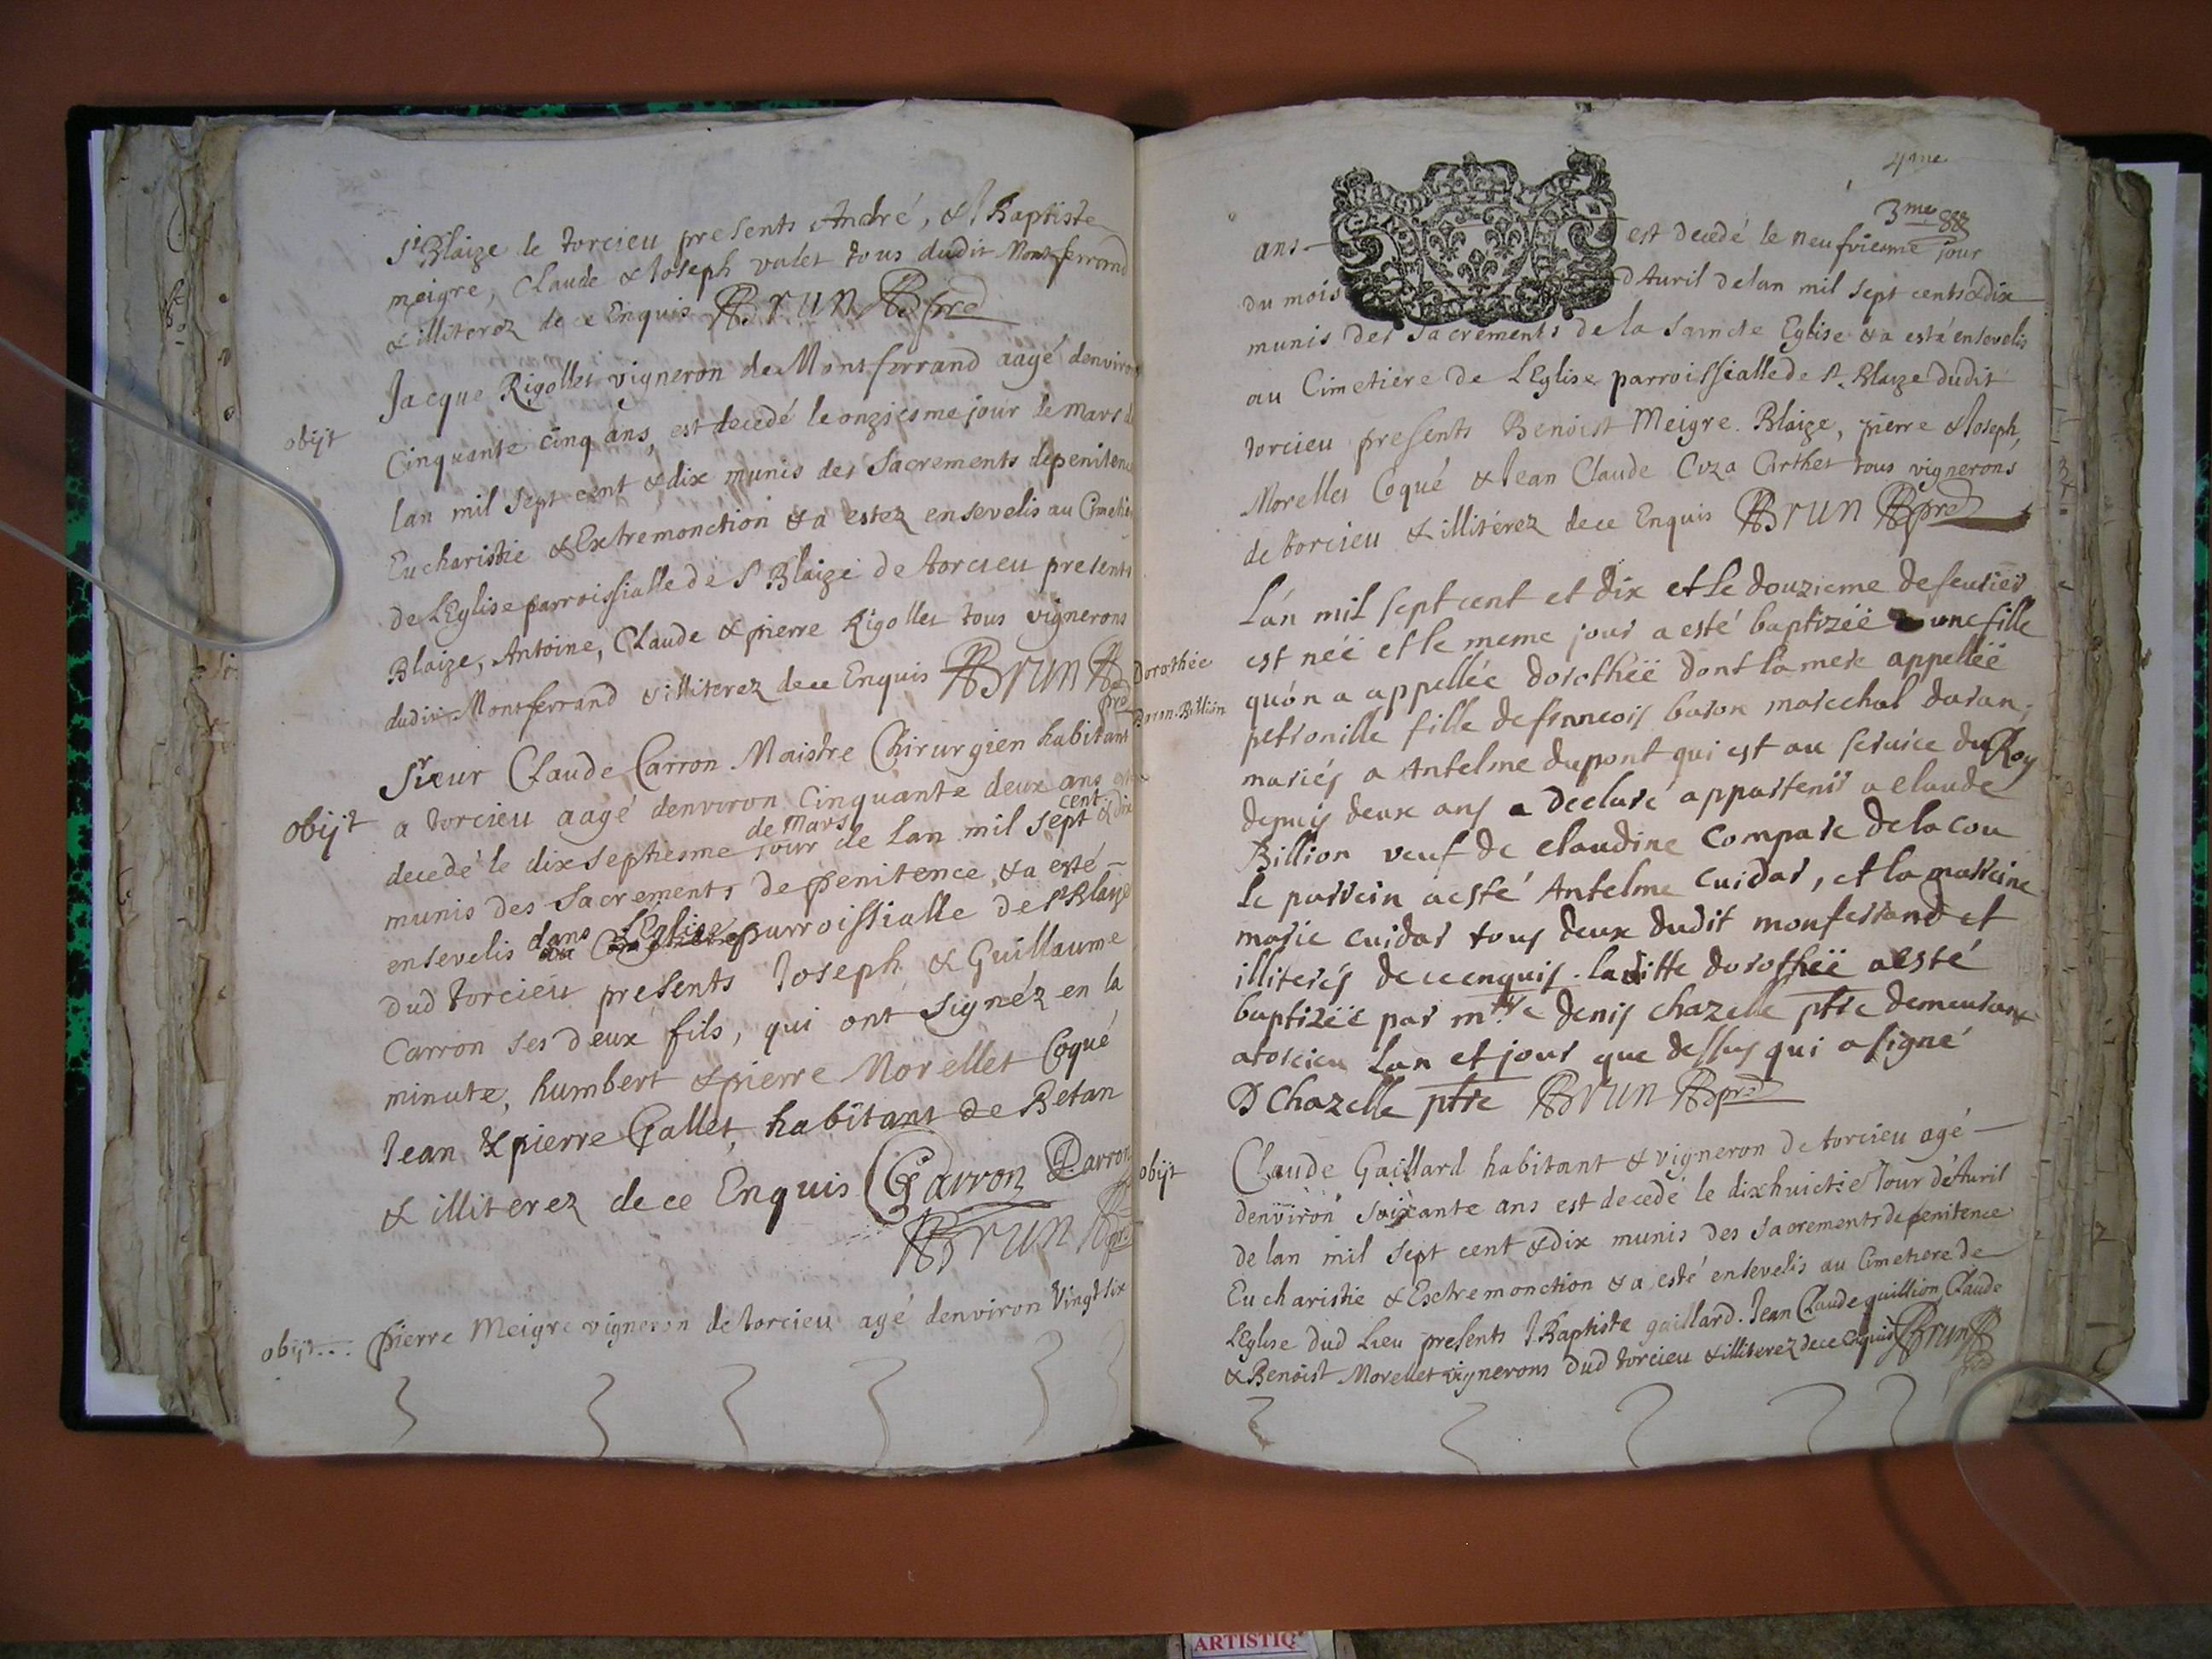 St Blaize le torcieu presents André, & J Baptiste
meigre, Claude & Joseph valet tous dudit Montferrand
& illiterez de ce Enquis Brun pre
Jacque Rigollet vigneron de Montferrand aagé denviron
obijt
Cinquante cinq ans, est decedé le onziesme jour de Mars de
lan mil sept cent & dix munis des Sacrements de penitence
Eucharistie & Extremonction & a estez ensevelis au Cimetiere
de LEglise parroissialle de St Blaize de torcieu presents
Blaize, Antoine, Claude & pierre Rigollet tous vignerons
dudit Montferrand & illiterez de ce Enquis Brun
pre
Sieur Claude Carron Maistre Chirurgien habitant
obijt
a torcieu aagé denviron Cinquante deux ans est
decedé le dix septiesme jour de Mars de lan mil sept cent & dix
munis des Sacrements de penitence, & a esté
ensevelis dans LEglise parroissialle de St Blaize
dud torcieu presents Joseph & Guillaume
Carron ses deux fils, qui ont signéz en la
minute, humbert & pierre Morellet Coqué
Jean & pierre Gallet, habitant de Betan
& illiterez de ce Enquis G Carron Carron
Brun pre
obijt pierre Meigre vigneron de torcieu agé denviron Vingt six
4me
3me 88
ans est decedé le neufviesme jour
du mois dAuril de lan mil sept cents & dix
munis des Sacrements de la Saincte Eglise & a esté ensevelis
au Cimetiere de LEglise parroissialle de St Blaize dudit
torcieu presents Benoist Meigre. Blaize, pierre & Joseph,
Morellet Coqué & Jean Claude Cuza Carthet tous vignerons
de torcieu & illiterez de ce Enquis Brun pre
Lán mil sept cent et dix et le douzieme de feurier
est néé et le meme jour a esté baptizéé une fille
Dorothée
quón a appellée dorothéé dont la mere appelléé
Baron. Billion
petronille fille de francois baron marechal daran,
mariés a Antelme dupont qui est au seruice du Roy
depuis deux ans a declaré appartenir a claude
Billion veuf de claudine Compare de la cou
le parrein a esté Antelme cuidar, et la marreine
marie cuidar tous deux dudit monferrand et
illiterés de ce enquis. laditte dorothéé a esté
baptizéé par mre denis chazelle ptre demeurant
a torcieu Lan et jour que dessus qui a signé
D Chazelle ptre Brun pre
obijt
Claude Gaillard habitant & vigneron de torcieu agé
denviron soixante ans est decedé le dixhuictie Jour déAuril
de lan mil sept cent & dix munis des Sacrements de penitence
Eucharistie & Exctremonction & a esté ensevelis au Cimetiere de
LEglise dud Lieu presents J Baptiste gaillard. Jean Claude guillion, Claude
& Benoist Morellet vignerons dud torcieu & illiterez de ce Enquis Brun
pre
ARTISTIQ